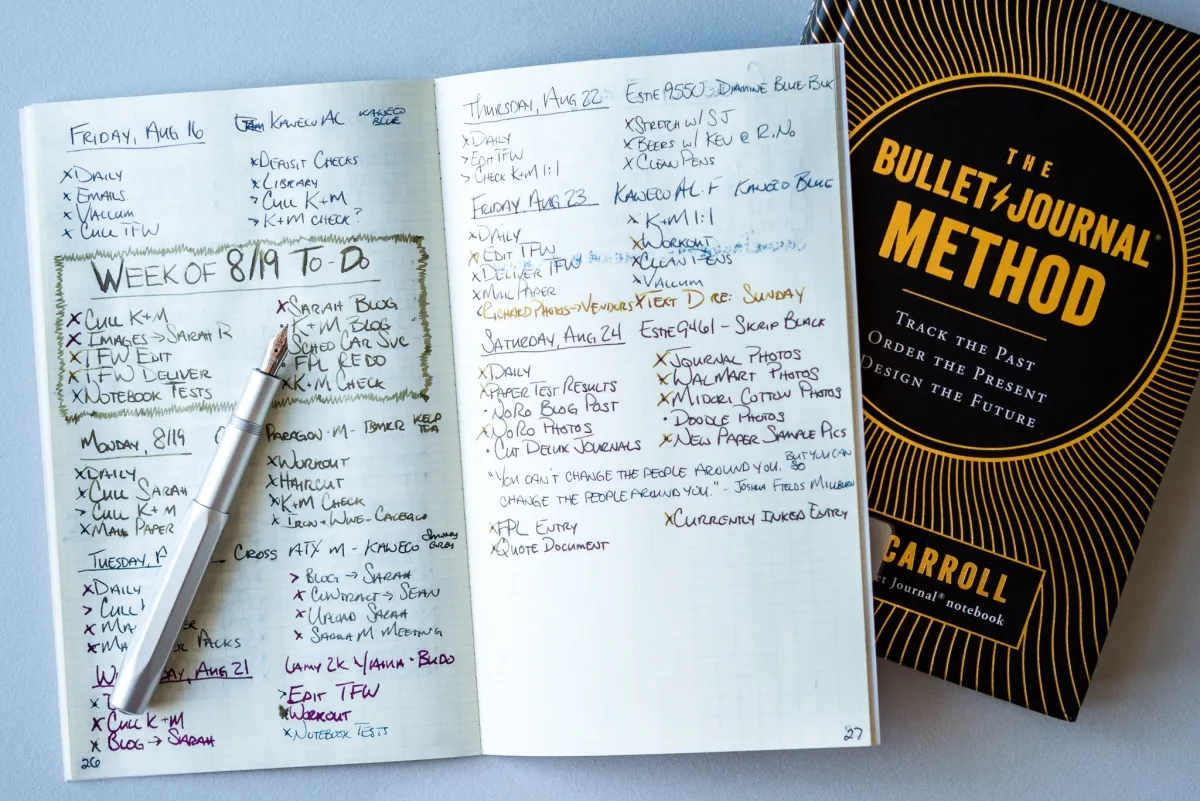 Friday, Aug 16
Kaweco AL Kaweco Blue
x Daily
x Emails
x Vaccum
x Cull TFW
x Deposit Checks
x Library
> Cull K+M
> K+M Check?
Week of 8/19 To-Do
x Cull K+M
x Images → Sarah R
x TFW Edit
x TFW Deliver
x Notebook Tests
x Sarah Blog
K+M Blog
Sched Car Svc
FPL Redo
x K+M Check
Monday, 8/19
Paragon - M - Kelp Tea
x Daily
x Cull Sarah
> Cull K+M
x Mail Paper
x Workout
x Haircut
x K+M Check
x Iron + Wine -
Tuesday,
Cross ATX M - Kaweco Smokey Grey
x Daily
> Cull
x
x Packs
> Blog → Sarah
x Contract → Sean
x Upload Sarah
x Sarah M Meeting
day, Aug 21
Lamy 2K
x
x Cull K+M
x Blog → Sarah
> Edit TFW
x Workout
x Notebook Tests
26
Thursday, Aug 22
Estie 9550 Diamine Blue-Blk
x Daily
> Edit TFW
> Check K+M 1:1
x Stretch w/ SJ
x Beers w/ Kev @ R.No
x Clean Pens
Friday Aug 23
Kaweco AL-F Kaweco Blue
x Daily
x Edit TFW
x Deliver TFW
x Mail Paper
x K+M 1:1
x Workout
x Clean Pens
x Vaccum
Richard Photos → Vendors x Text D re: Sunday
Saturday, Aug 24
Estie 9461 - Skrip Black
x Daily
x Paper Test Results
· NoRo Blog Post
x NoRo Photos
· Cut Delux Journals
x Journal Photos
x Walmart Photos
x Midori Cotton Photos
· Doodle Photos
x New Paper Sample Pics
"You can't change the people around you, but you can
change the people around you." - Joshua Fields Millburn
x FPL Entry
x Quote Document
x Currently Inked Entry
27
THE
BULLET JOURNAL®
METHOD
TRACK THE PAST
ORDER THE PRESENT
DESIGN THE FUTURE
CARROLL
et Journal® notebook